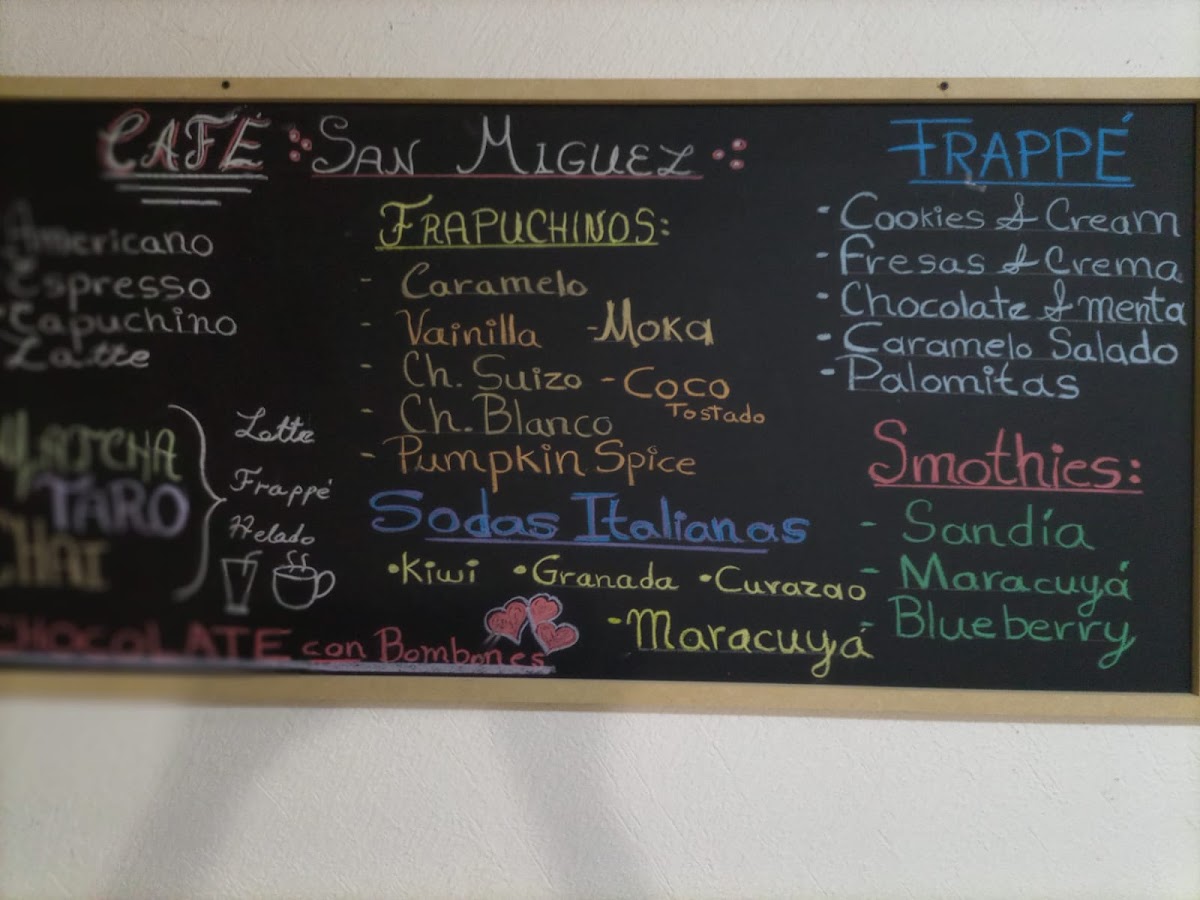 CAFÉ SAN MIGUEL
Americano
Espresso
Capuchino
Latte
MATCHA
TARO
CHAI
Latte
Frappé
Helado
CHOCOLATE con Bombones
FRAPUCHINOS:
- Caramelo
- Vainilla - Moka
- Ch. Suizo - Coco Tostado
- Ch. Blanco
- Pumpkin Spice
Sodas Italianas
•Kiwi •Granada •Curazao
•Maracuyá
FRAPPÉ
- Cookies & Cream
- Fresas & Crema
- Chocolate & menta
- Caramelo Salado
- Palomitas
Smothies:
- Sandía
- Maracuyá
- Blueberry